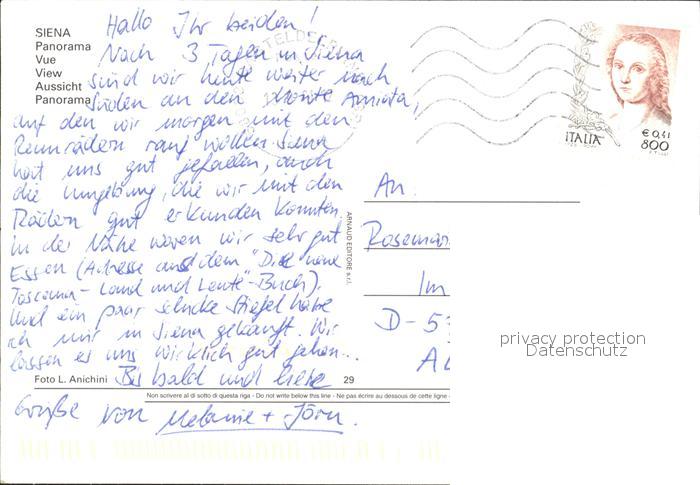 Hallo Ihr beiden!
SIENA
Panorama
Vue
View
Aussicht
Panorama
Nach 3 Tagen in Siena
sind wir heute weiter nach
Süden an den Monte Amiata,
auf den wir morgen mit den
Rennrädern rauf wollen. Siena
hat uns gut gefallen, auch
die Umgebung, die wir mit den
Rädern gut erkunden konnten.
In der Nähe waren wir sehr gut
Essen (Adresse aus dem "Die neue
Toscana - Land und Leute"-Buch).
Und ein paar schicke Stiefel habe
ich mir in Siena gekauft. Wir
lassen es uns wirklich gut gehen...
Bis bald und liebe
Grüße von Melanie + Jörn.
Foto L. Anichini
29
Non scrivere al di sotto di questa riga - Do not write below this line - Ne pas écrire au dessous de cette ligne
ARNAUD EDITORE s.r.l.
ITALIA
€ 0,41
800
An
Rosemar
Im
D-53
privacy protection
Datenschutz